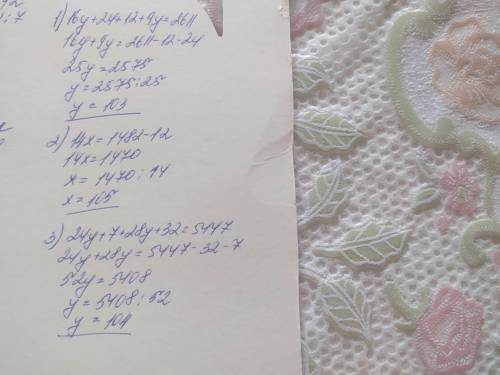 1) 16y+24+12+9y=2611
16y+9y=2611-12-24
25y=2575
y=2575:25
y=103
2) 14x=1482-12
14x=1470
x=1470:14
x=105
3) 24y+7+28y+32=5447
24y+28y=5447-32-7
52y=5408
y=5408:52
y=104